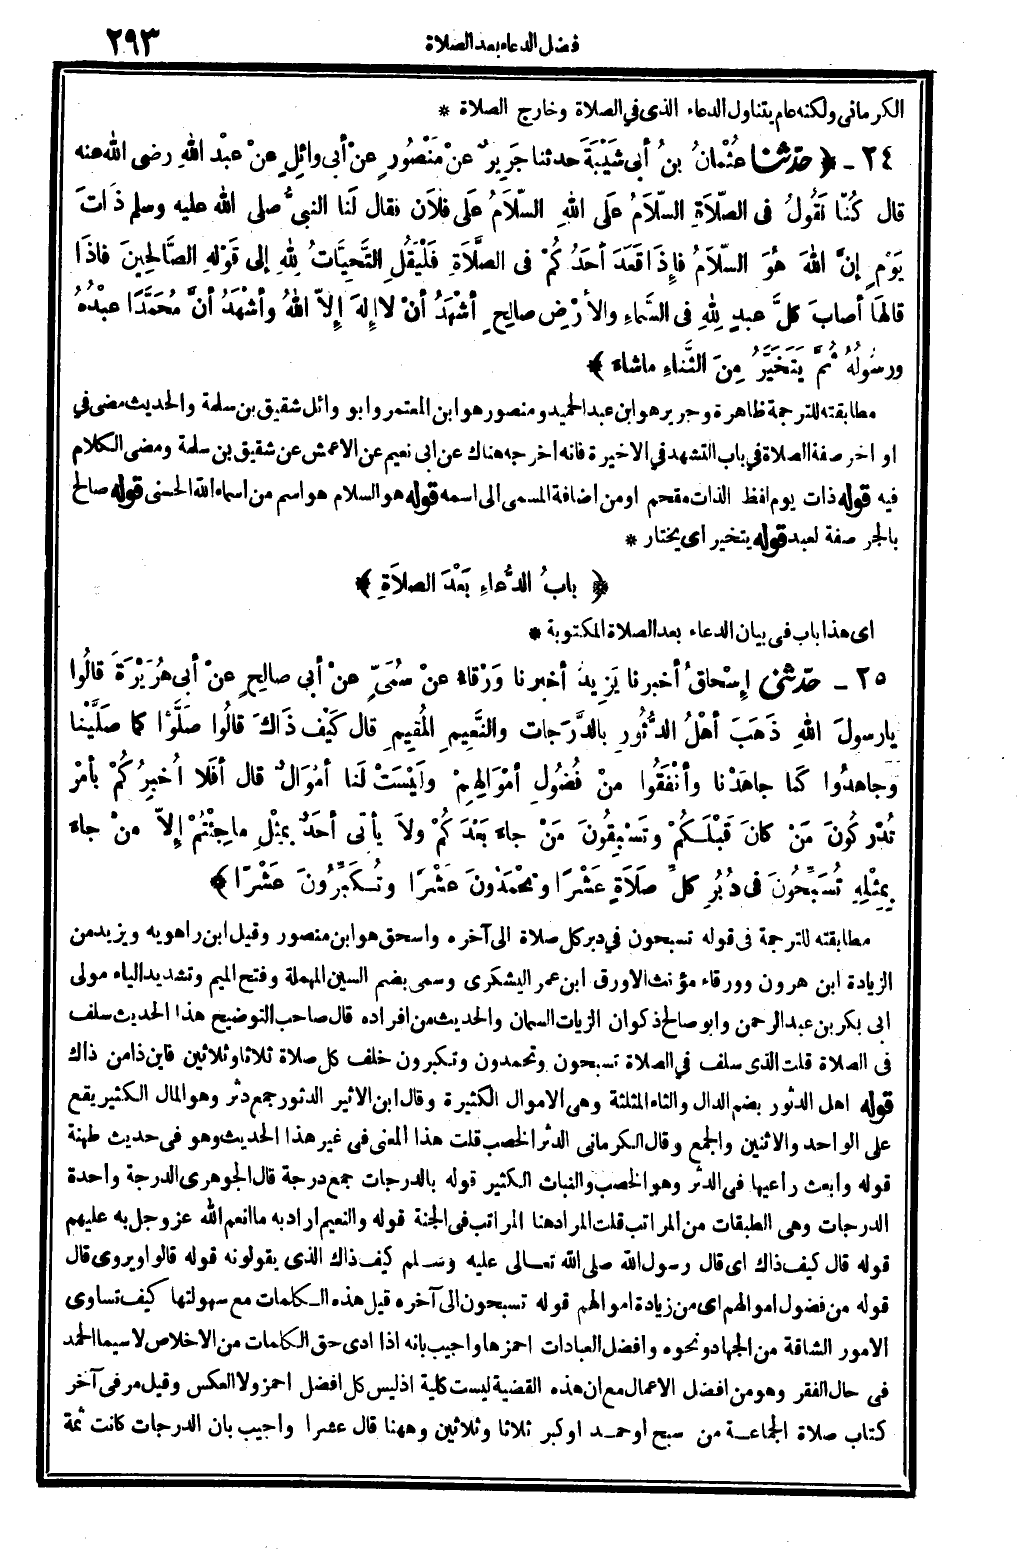 فضل الدعاء بعد الصلاة ٢٩٣
الكرماني ولكنه عام يتناول الدعاء الذي في الصلاة وخارج الصلاة *
٢٤ - ﴿ حدّثنا عُثْمانُ بنُ أبي شَيْبَةَ حدثنا جَرِيرٌ عنْ مَنْصُورٍ عنْ أبي وائِلٍ عنْ عبْدِ اللهِ رضي الله عنه
قال كُنّا نَقُولُ في الصلاةِ السّلاَمُ علَى اللهِ السّلاَمُ علَى فُلاَن فقال لَنا النبيُّ صلى الله عليه وسلم ذَاتَ
يَوْمٍ إنَّ اللهَ هُوَ السّلاَمُ فإذَا قَعَدَ أحَدُ كُمْ في الصلَّاةِ فَلْيَقُلِ التَّحِيَّاتُ لِلهِ إلى قَوْلِهِ الصَّالِحِينَ فاذَا
قالَهَا أصابَ كلَّ عبدٍ لِلهِ في السَّماءِ والأرْضِ صالِحٍ أشْهَدُ أنْ لا إلهَ إلاّ اللهُ وأشْهَدُ أنَّ مُحَمَّدًا عبْدُهُ
ورسُولُهُ ثُمَّ يَتَخَيَّرُ مِنَ الثَّناءِ ماشاءَ ﴾
مطابقته للترجمة ظاهرة وجرير هو ابن عبد الحميد ومنصور هو ابن المعتمر وابو وائل شقيق بن سلمة والحديث مضى في
اواخر صفة الصلاة في باب التشهد في الاخيرة فانه اخرجه هناك عن ابى نعيم عن الاعمش عن شقيق بن سلمة ومضى الكلام
فيه قوله ذات يوم لفظ الذات مقحم او من اضافة المسمى الى اسمه قوله هو السلام هو اسم من اسماء الله الحسنى قوله صالح
بالجر صفة لعبد قوله يتخير اى يختار *
﴿ بابُ الدُّعاءِ بَعْدَ الصلاَةِ ﴾
اى هذا باب فى بيان الدعاء بعد الصلاة المكتوبة *
٢٥ - حدّثني إسْحاقُ أخبرنا يَزِيدُ أخبرنا وَرْقاءُ عنْ سُمَيٍّ عنْ أبي صالِحٍ عنْ أبي هُرَيْرَةَ قالُوا
يارسولَ اللهِ ذَهَبَ أهْلُ الدُّثُورِ بالدَّرَجات والنَّعِيمِ المُقِيمِ قال كَيْفَ ذَاكَ قالُوا صَلَّوْا كما صَلَّيْنا
وجاهدُوا كَما جاهَدْنا وأنْفَقُوا مِنْ فُضُولِ أمْوَالِهِمْ ولَيْسَتْ لَنا أمْوَالٌ قال أفَلا أُخبِرُكُمْ بأمْرٍ
تُدْرِكُونَ مَنْ كانَ قَبْلَكُمْ وتَسْبِقُونَ مَنْ جاءَ بَعْدَكُمْ ولاَ يأتي أحَدٌ بِمِثْلِ ماجِئْتُمْ إلاّ منْ جاءَ
بِمِثْلِهِ تُسَبِّحُونَ في دُبُرِ كلِّ صَلَاةٍ عَشْرًا وتَحْمَدُونَ عَشْرًا وتُكَبِّرُونَ عَشْرًا ﴾
مطابقته للترجمة فى قوله تسبحون في دبر كل صلاة الى آخره واسحق هو ابن منصور وقيل ابن راهويه ويزيد من
الزيادة ابن هرون وورقاء مؤنث الاورق ابن عمر اليشكرى وسمى بضم السين المهملة وفتح الميم وتشديد الياء مولى
ابى بكر بن عبد الرحمن وابو صالح ذكوان الزيات السمان والحديث من افراده قال صاحب التوضيح هذا الحديث سلف
فى الصلاة قلت الذى سلف في الصلاة تسبحون وتحمدون وتكبرون خلف كل صلاة ثلاثا وثلاثين فاين ذا من ذاك
قوله اهل الدثور بضم الدال والثاء المثلثة وهى الاموال الكثيرة وقال ابن الاثير الدثور جمع دثر وهو المال الكثير يقع
على الواحد والاثنين والجمع وقال الكرمانى الدثر الخصب قلت هذا المعنى فى غير هذا الحديث وهو فى حديث طهنة
قوله وابعث راعيها فى الدثر وهو الخصب والنبات الكثير قوله بالدرجات جمع درجة قال الجوهرى الدرجة واحدة
الدرجات وهى الطبقات من المراتب قلت المراد هنا المراتب فى الجنة قوله والنعيم اراد به ما انعم الله عز وجل به عليهم
قوله قال كيف ذاك اى قال رسول الله صلى الله تعالى عليه وسلم كيف ذاك الذى يقولونه قوله قالوا ويروى قال
قوله من فضول اموالهم اى من زيادة اموالهم قوله تسبحون الى آخره قيل هذه الكلمات مع سهولتها كيف تساوى
الامور الشاقة من الجهاد ونحوه وافضل العبادات احمزها واجيب بانه اذا ادى حق الكلمات من الاخلاص لا سيما الحمد
فى حال الفقر وهو من افضل الاعمال مع ان هذه القضية ليست كلية اذ ليس كل افضل احمز ولا العكس وقيل مر فى آخر
كتاب صلاة الجماعة من سبح او حمد او كبر ثلاثا وثلاثين وههنا قال عشرا واجيب بان الدرجات كانت ثمة